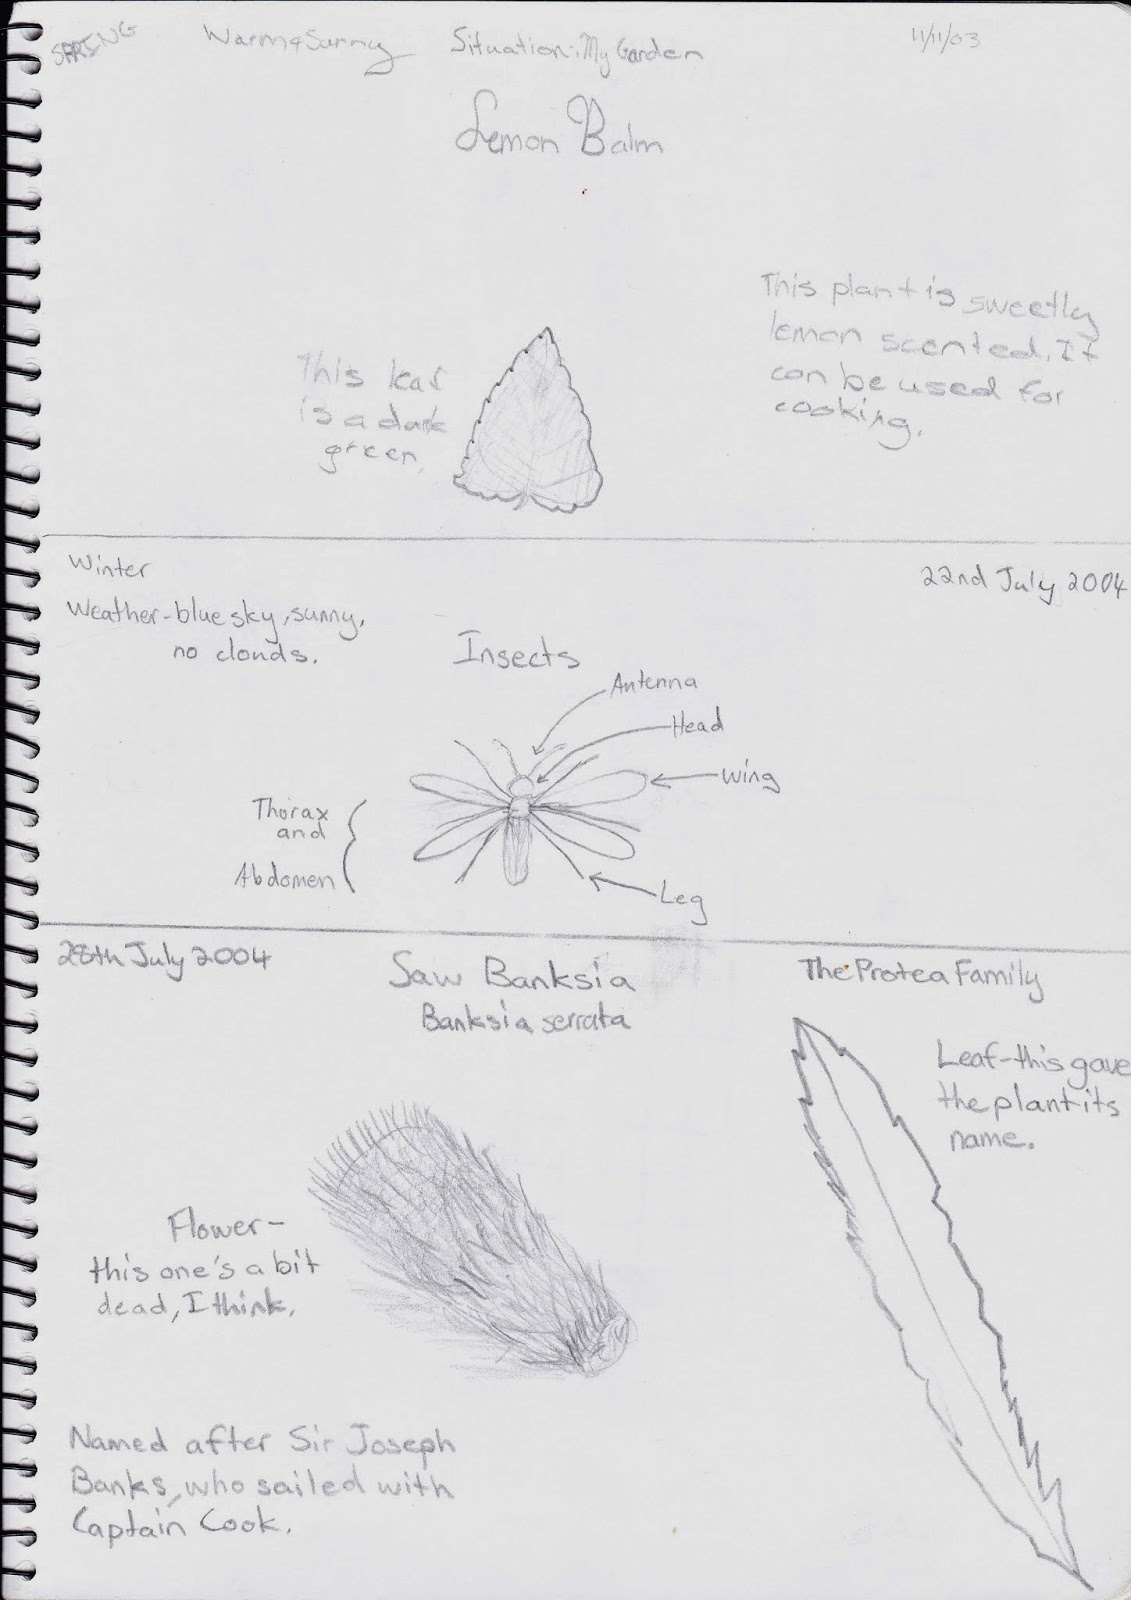 SPRING Warm & Sunny Situation: My Garden 11/11/03
Lemon Balm
This leaf
is a dark
green.
This plant is sweetly
lemon scented. It
can be used for
cooking.
Winter
Weather - blue sky, sunny,
no clouds.
22nd July 2004
Insects
Antenna
Head
Wing
Thorax
and
Abdomen
Leg
28th July 2004
Saw Banksia
Banksia serrata
The Protea Family
Leaf - this gave
the plant its
name.
Flower -
this one's a bit
dead, I think.
Named after Sir Joseph
Banks, who sailed with
Captain Cook.